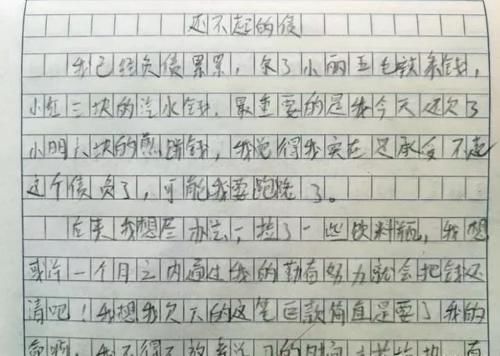 还不起的债
我已经负债累累，欠了小丽五毛辣条钱，
小红三块的汽水钱，最重要的是我今天还欠了
小明六块的煎饼钱，我觉得我实在是承受不起
这个债负了，可能我要跑路了。
后来我想尽办法，捡了一些饮料瓶，我想
或许一个月之内通过我的勤奋努力就会把钱还
清吧！我想我欠下的这笔巨款简直是要了我的
我不得不放弃学习的时间